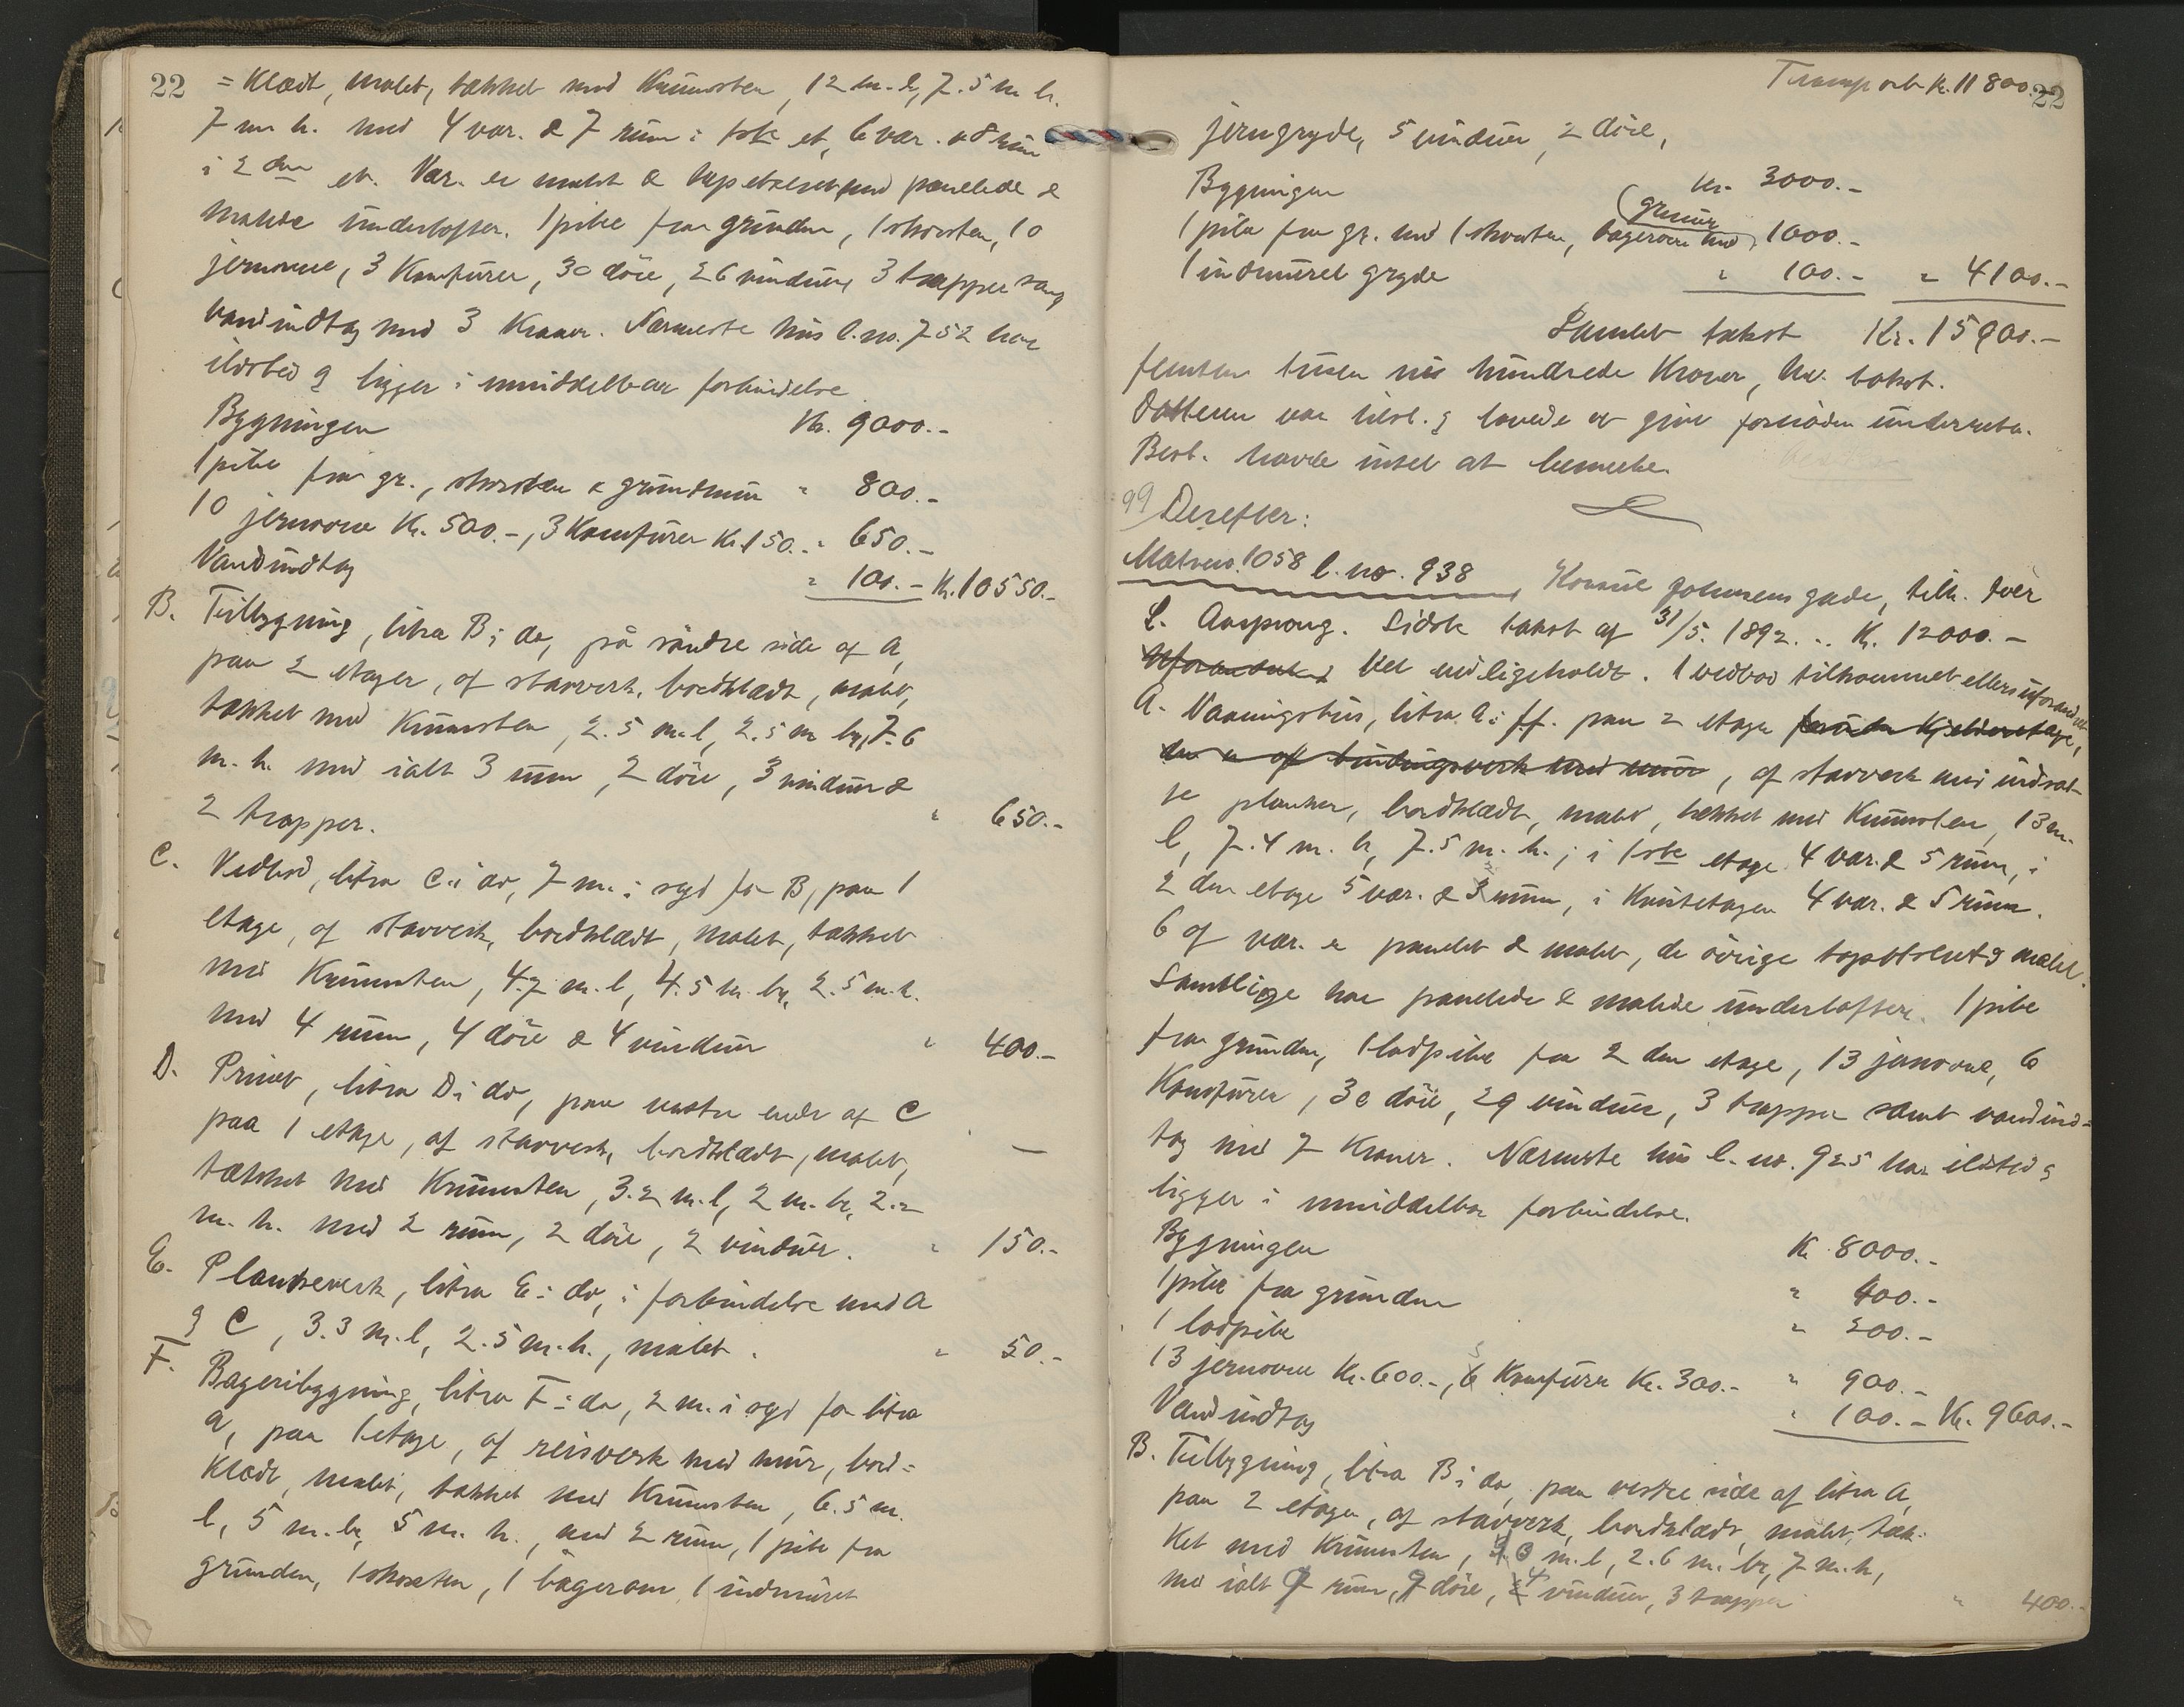 22 = klædt, malet, tækket med Krumsten, 12 m. l, 7.5 m b.
7 m h. med 4 vær. & 7 rum i 1ste et, 6 vær. & 8 rum
i 2den et. Vær. er malet & tapetseret med panelede &
malede underlofter. 1 pibe fra grunden, 1 skorsten, 10
jernovne, 3 Komfurer, 30 döre, 26 vinduer, 3 trapper samt
vandindtag med 3 Kraner. Nærmeste hus l. no. 752 har
ildsted & ligger i umiddelbar forbindelse
Bygningen Kr. 9000.-
1 pibe fra gr., skorsten & grundmur " 800.-
10 jernovne Kr. 500.-, 3 Komfurer Kr. 150.- " 650.-
Vandindtag " 100.- Kr. 10550.-
B. Tilbygning, litra B i do, på söndre side af A,
paa 2 etager, af stavverk, bordklædt, malet,
tækket med Krumsten, 2.5 m. l, 2.5 m br, 7.6
m. h. med ialt 3 rum, 2 döre, 3 vinduer &
2 trapper. " 650.-
C. Vedbod, litra C i do, 7 m. i syd for B, paa 1
etage, af stavverk, bordklædt, malet, tækket
med Krumsten, 4.7 m. l, 4.5 m. br, 2.5 m. h.
med 4 rum, 4 döre & 4 vinduer " 400.-
D. Privet, litra D i do, paa vestre ende af C
paa 1 etage, af stavverk, bordklædt, malet, —
tækket med Krumsten, 3.2 m. l, 2 m. br, 2.2
m. h. med 2 rum, 2 döre, 2 vinduer. " 150.-
E. Plankeverk, litra E i do, i forbindelse med A
& C, 3.3 m. l, 2.5 m. h., malet. " 50.-
F. Bageribygning, litra F i do, 2 m. i syd for litra
A, paa 1 etage, af reisverk med mur, bord=
klædt, malet, tækket med Krumsten, 6.5 m.
l, 5 m. br, 5 m. h., med 2 rum, 1 pibe fra
grunden, 1 skorsten, 1 bagerovn, 1 indmuret
Transport Kr. 11800.- 22
jerngryde, 5 vinduer, 2 döre,
Bygningen Kr. 3000.-
(grmur
1 pibe fra gr. med 1 skorsten, bagerovn med) 1000.-
1 indmuret gryde " 100.- " 4100.-
Samlet takst Kr. 15900.-
femten tusen ni hundrede Kroner,
Datteren var tilst. & lovede at give fornöden underretn.
Best. havde intet at bemerke.
99 Derefter:
Matrno. 1058 l. no. 938 Konsul Johnsens gade, tilh.
L. Aasprong. Sidste takst af 31/5. 1892... Kr. 12000.-
Uforandret & Vel vedligeholdt. 1 vedbod tilkommet ellers uforandret
A. Vaaningshus, litra A i ff. paa 2 etager foruden Kjelderetage,
der er af bindingsverk med mur, af stavverk med indsat-
te planker, bordklædt, malet, tækket med Krumsten, 13 m.
l, 7.4 m. b, 7.5 m. h.; i 1ste etage 4 vær. & 5 rum, i
2den etage 5 vær. & 3 rum, i Kvistetagen 4 vær. & 5 rum.
6 af vær. er panelet & malet, de övrige tapetseret & malet.
Samtlige har panelede & malede underlofter. 1 pibe
fra grunden, 1 lodpibe fra 2den etage, 13 jernovne, 6
Komfurer, 30 döre, 29 vinduer, 3 trapper samt vandind=
tag med 7 Kraner. Nærmeste hus l. no. 925 har ildsted &
ligger i umiddelbar forbindelse.
Bygningen Kr. 8000.-
1 pibe fra grunden " 400.-
1 lodpibe " 200.-
13 jernovne Kr. 600.-, 6 Komfurer Kr. 300.- " 900.-
Vandindtag " 100.- Kr. 9600.-
B. Tilbygning, litra B i do, paa vestre side af litra A,
paa 2 etager, af stavverk, bordklædt, malet, tæk-
ket med Krumsten, m. l, 2.6 m. br, 7 m. h,
med ialt 9 rum, 9 döre, 4 vinduer, 3 trapper " 400.-